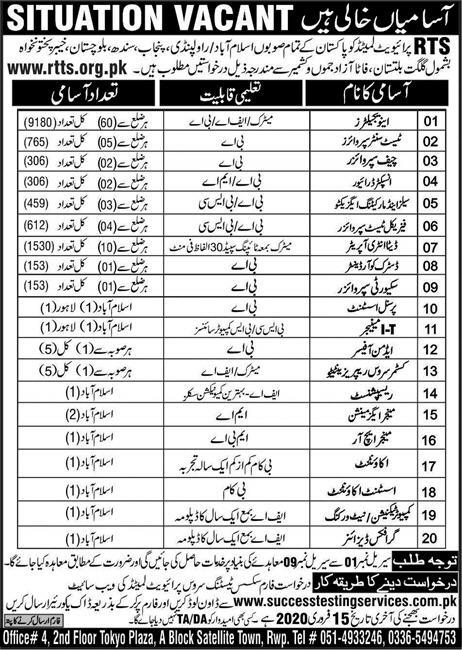 SITUATION VACANT آسامیاں خالی ہیں
RTS پرائیویٹ لمیٹڈ کو پاکستان کے تمام صوبوں اسلام آباد/راولپنڈی، پنجاب، سندھ، بلوچستان، خیبرپختونخواہ
بشمول گلگت بلتستان، فاٹا آزاد جموں و کشمیر سے مندرجہ ذیل درخواستیں مطلوب ہیں۔ www.rtts.org.pk
آسامی کا نام تعلیمی قابلیت تعداد آسامی
01 انویجیلیٹرز میٹرک/ایف اے/بی اے ہر ضلع سے (60) کل تعداد (9180)
02 ٹیسٹ سنٹر سپروائزر بی اے ہر ضلع سے (05) کل تعداد (765)
03 چیف سپروائزر بی اے ہر ضلع سے (02) کل تعداد (306)
04 انسپکٹر ڈرائیور بی اے/ایم اے ہر ضلع سے (02) کل تعداد (306)
05 سیلز اینڈ مارکیٹنگ ایگزیکٹو بی اے/بی ایس سی ہر ضلع سے (03) کل تعداد (459)
06 فیزیکل ٹیسٹ سپروائزر بی اے/بی ایس سی ہر ضلع سے (04) کل تعداد (612)
07 ڈیٹا انٹری آپریٹر میٹرک بمعہ ٹائپنگ سپیڈ 30 الفاظ فی منٹ ہر ضلع سے (10) کل تعداد (1530)
08 ڈسٹرکٹ کوآرڈینیٹر بی اے ہر ضلع سے (01) کل تعداد (153)
09 سکیورٹی سپروائزر بی اے ہر ضلع سے (01) کل تعداد (153)
10 پرسنل اسسٹنٹ بی اے اسلام آباد (1) لاہور (1)
11 I-T مینیجر بی ایس سی/بی ایس کمپیوٹر سائنسز اسلام آباد (1) لاہور (1)
12 ایڈمن آفیسر بی اے ہر صوبہ سے (1) کل (5)
13 کسٹمر سروس ریپریزینٹیٹو میٹرک/ایف اے ہر صوبہ سے (1) کل (5)
14 ریسپشنسٹ ایف اے-بہترین کمیونیکیشن سکلز اسلام آباد (1)
15 منیجر ایگزیمینیشن ایم اے اسلام آباد (2)
16 منیجر ایچ آر ایم بی اے اسلام آباد (1)
17 اکاؤنٹنٹ بی کام کم از کم ایک سالہ تجربہ اسلام آباد (1)
18 اسسٹنٹ اکاؤنٹنٹ بی کام اسلام آباد (1)
19 کمپیوٹر ٹیکنیشن/نیٹ ورکنگ ایف اے بمعہ ایک سال کا ڈپلومہ اسلام آباد (1)
20 گرافکس ڈیزائنر ایف اے بمعہ ایک سال کا ڈپلومہ اسلام آباد (1)
توجہ طلب سیریل نمبر 01 سے سیریل نمبر 09 معاہدے کی بنیاد پر خدمات حاصل کی جائیں گی اور ضرورت کے مطابق معاہدہ کیا جائے گا۔
درخواست دینے کا طریقہ کار درخواست فارم سکسس ٹیسٹنگ سروس پرائیویٹ لمیٹڈ کی ویب سائیٹ
www.successtestingservices.com.pk سے ڈاون لوڈ کریں اور فارم پر کر کے بذریعہ ڈاک یا کورئیر ارسال کریں
درخواست بھیجنے کی آخری تاریخ 15 فروری 2020 ہے کسی بھی امیدوار کو TA/DA نہیں دیا جائے گا۔ فارم ارسال کرنے کا پتہ
Office# 4, 2nd Floor Tokyo Plaza, A Block Satellite Town, Rwp. Tel # 051-4933246, 0336-5494753